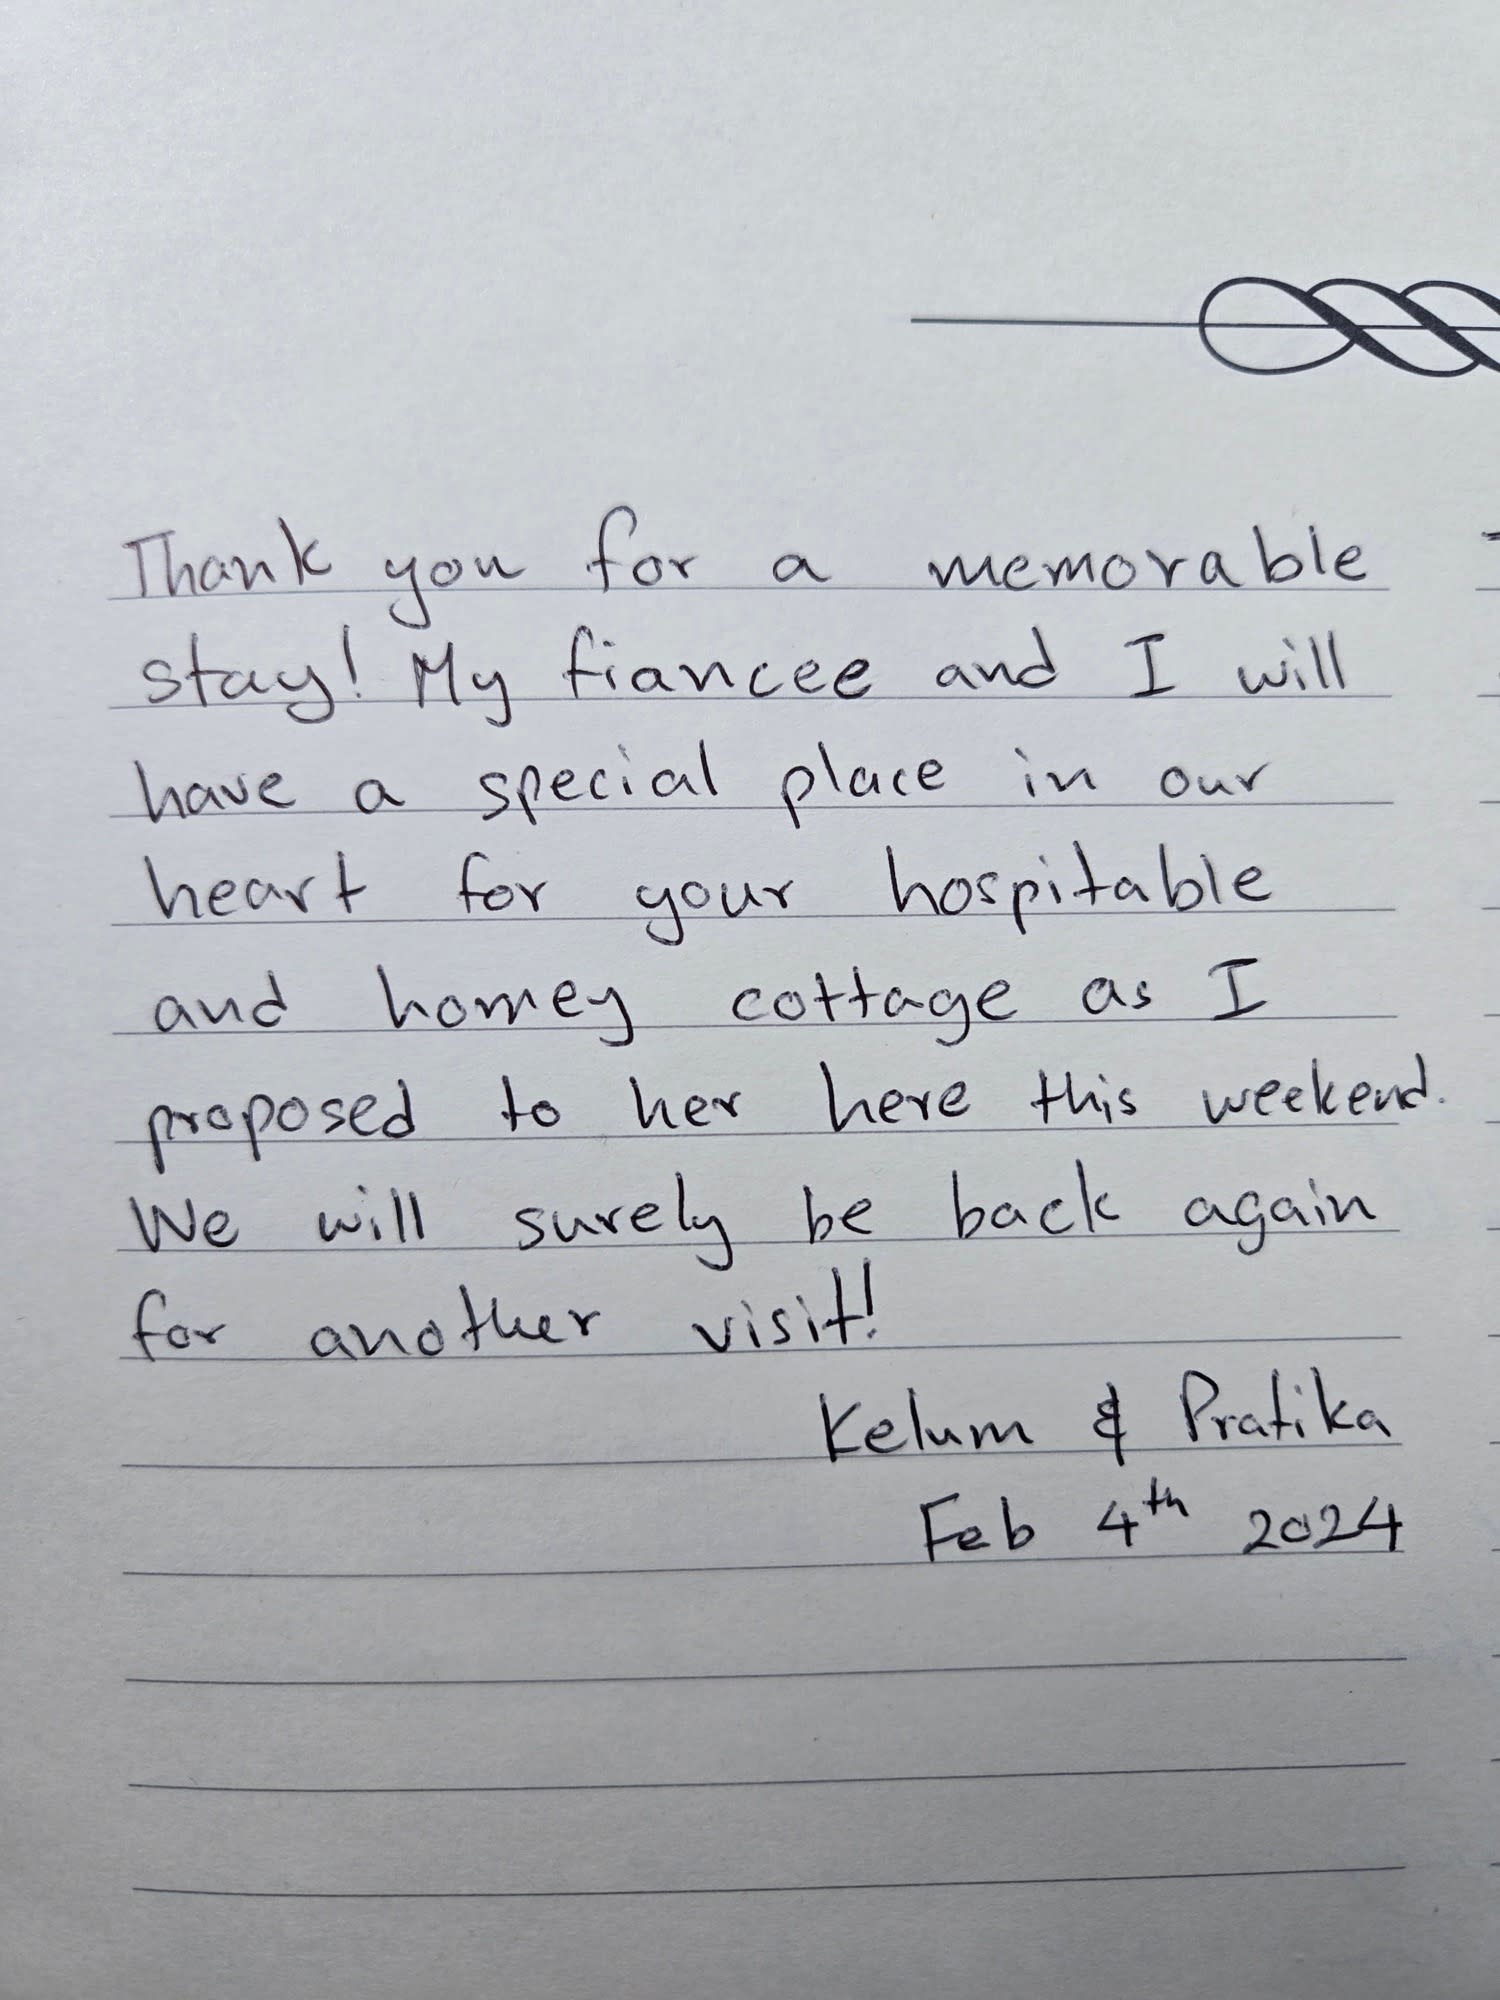 Thank you for a memorable
stay! My fiancee and I will
have a special place in our
heart for your hospitable
and homey cottage as I
proposed to her here this weekend.
We will surely be back again
for another visit!
Kelum & Pratika
Feb 4th 2024